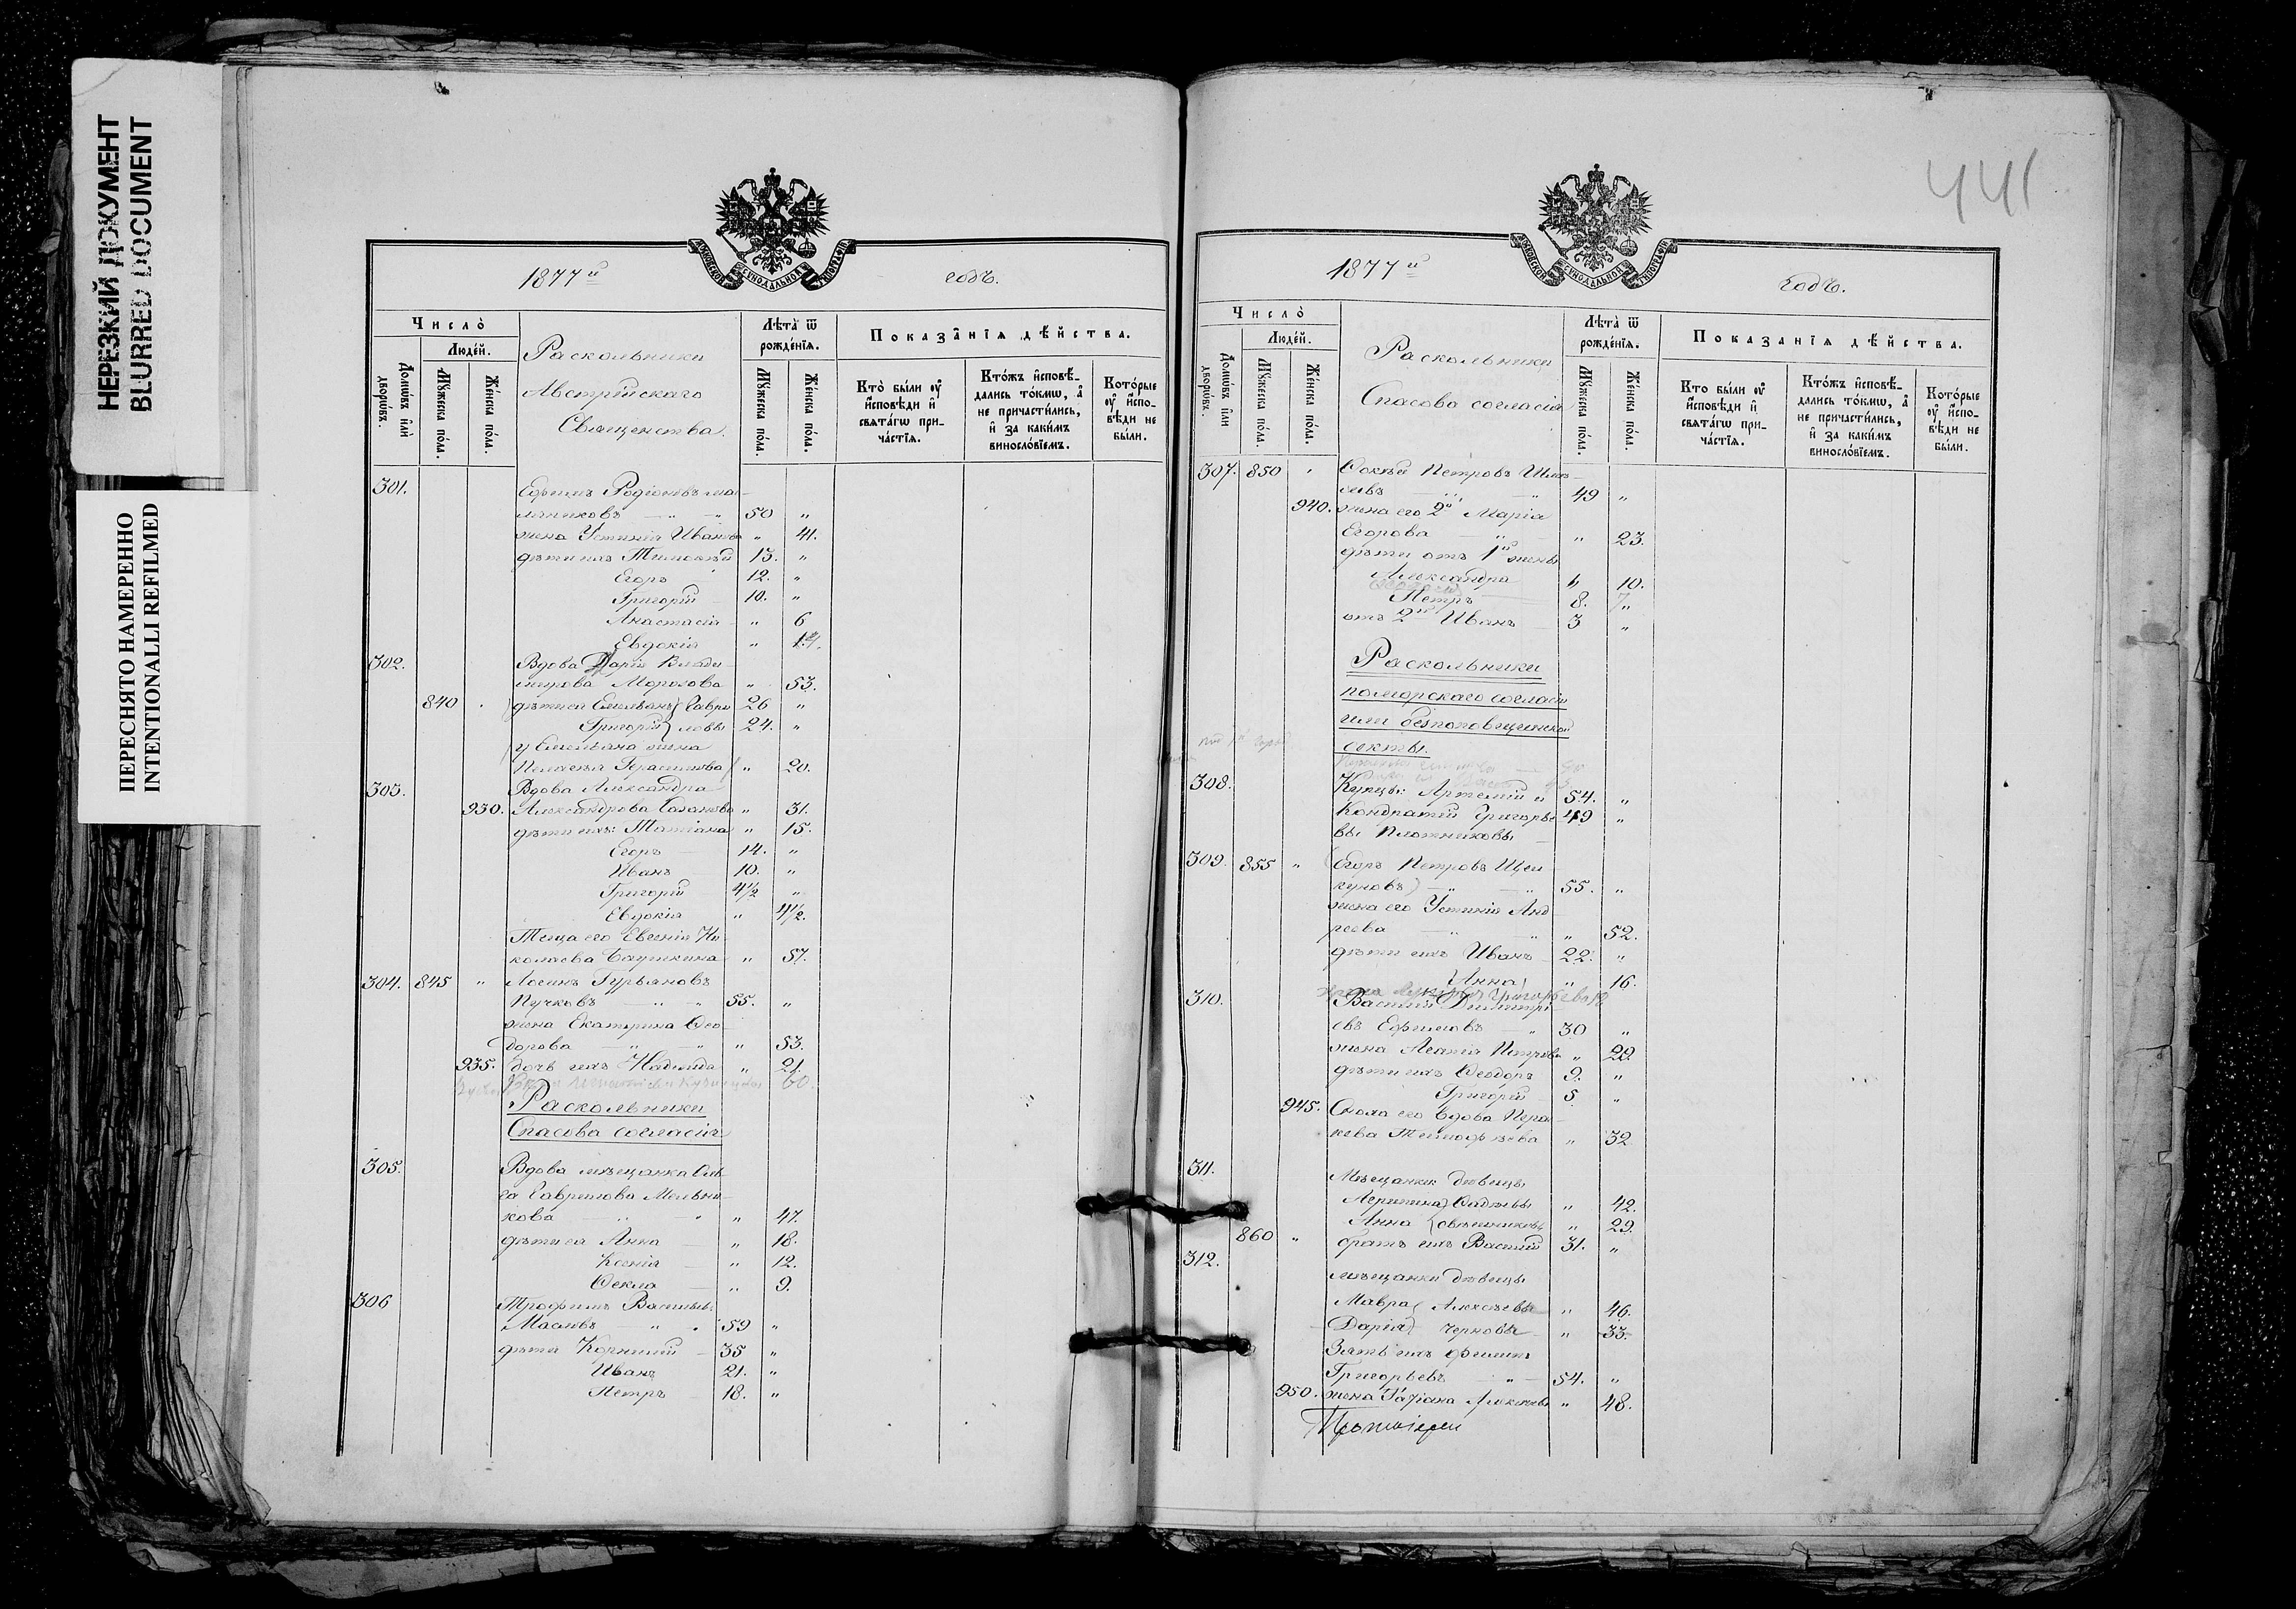 НЕРЕЗКИЙ ДОКУМЕНТ
BLURRED DOCUMENT
ПЕРЕСНЯТО НАМЕРЕННО
INTENTIONALLI REFILMED
МОСКОВСКОЙ СѴНОДАЛЬНОЙ ТИПОГРАФІИ
1877й годъ.
Число̀
Люде́й.
Домѡ́въ и҆лѝ дворѡ́въ.
Мꙋ́жеска по́ла.
Же́нска по́ла.
Раскольники
Австрійскаго
Священства.
Лѣ́та ѿ рожде́нїѧ.
Мꙋ́жеска по́ла.
Же́нска по́ла.
Показа̑нїѧ дѣ́йства.
Кто̀ бы́ли ᲂу҆ и҆́сповѣди и҆ свѧта́гѡ при-
ча́стїѧ.
Кто́жъ и҆сповѣ́-
дались то́кмѡ, а҆
не причасти́лись,
и҆ за каки́мъ
виносло́вїемъ.
Кото́рые
ᲂу҆ и҆́спо-
вѣди не
бы́ли.
301. Ефимъ Родіоновъ
50 "
жена Устинія Иванова " 41.
дѣти ихъ Тимоѳей 13. "
Егоръ 12. "
Григорій 10. "
Анастасія " 6
Евдокія "
302. Вдова Дарія
Морозова " 53.
840 дѣти ея Емельянъ Гаври 26 "
Григорій ловы 24. "
у Емельяна жена
Пелагея Герасимова " 20.
303. Вдова Александра
930. Александрова " 31.
дѣти ихъ: Татіана " 15.
Егоръ 14. "
Иванъ 10. "
Григорій 4½ "
Евдокія " 4½.
Теща его Евгенія Ни-
колаева " 57.
304. 845 " Логинъ Гурьяновъ
Пучковъ 55. "
жена Екатерина Ѳео-
дорова " 53.
935. дочь ихъ Надежда " 21.
60.
Раскольники
Спасова согласія
305. Вдова мѣщанка
Гаврилова Мельни-
кова " 47.
дѣти ея Анна " 18.
Ксенія " 12.
Ѳекла " 9.
306 Трофимъ Васильевъ
Масловъ 59 "
дѣти Корнилій 35 "
Иванъ 21. "
Петръ 18. "
441
МОСКОВСКОЙ СѴНОДАЛЬНОЙ ТИПОГРАФІИ
1877й годъ.
Число̀
Люде́й.
Домѡ́въ и҆лѝ дворѡ́въ.
Мꙋ́жеска по́ла.
Же́нска по́ла.
Раскольники
Спасова согласія
Лѣ́та ѿ рожде́нїѧ.
Мꙋ́жеска по́ла.
Же́нска по́ла.
Показа̑нїѧ дѣ́йства.
Кто бы́ли ᲂу҆ и҆́сповѣди и҆ свѧта́гѡ при-
ча́стїѧ.
Кто́жъ и҆сповѣ́-
дались то́кмѡ, а҆
не причасти́лись,
и҆ за каки́мъ
виносло́вїемъ.
Кото́рые
ᲂу҆ и҆́спо-
вѣди не
бы́ли.
307. 850 Петровъ
49 "
940. жена его 2я Марія
Егорова " 23.
дѣти отъ 1й жены
Александра 10.
Петръ 8.
отъ 2й Иванъ 3 "
Раскольники
поморскаго согласія
или безпоповщинской
секты.
308. Купцы: Артемій и 54. "
Кондратій Григорье 49 "
вы Плотниковы
309. 855 " Егоръ Петровъ Щел
куновъ 55. "
жена его Устинія Анд
реева " 52.
дѣти ихъ Иванъ 22. "
Анна " 16.
310. Василій Димитрі-
евъ Ефимовъ 30 "
жена Агапія Петрова " 29.
дѣти ихъ Ѳеодоръ 9. "
Григорій 5 "
945. Сноха его вдова Пара-
кева Тимофѣева " 32
311. Мѣщанки дѣвицы
" 42.
Анна " 29.
860 " братъ ихъ Василій 31. "
312. мѣщанки дѣвицы
Мавра Алексѣевы " 46.
Дарія Черновы " 33.
Зять ихъ Филипъ
Григорьевъ 54. "
950. жена Татіана Алексѣева " 48.
Протоіерей